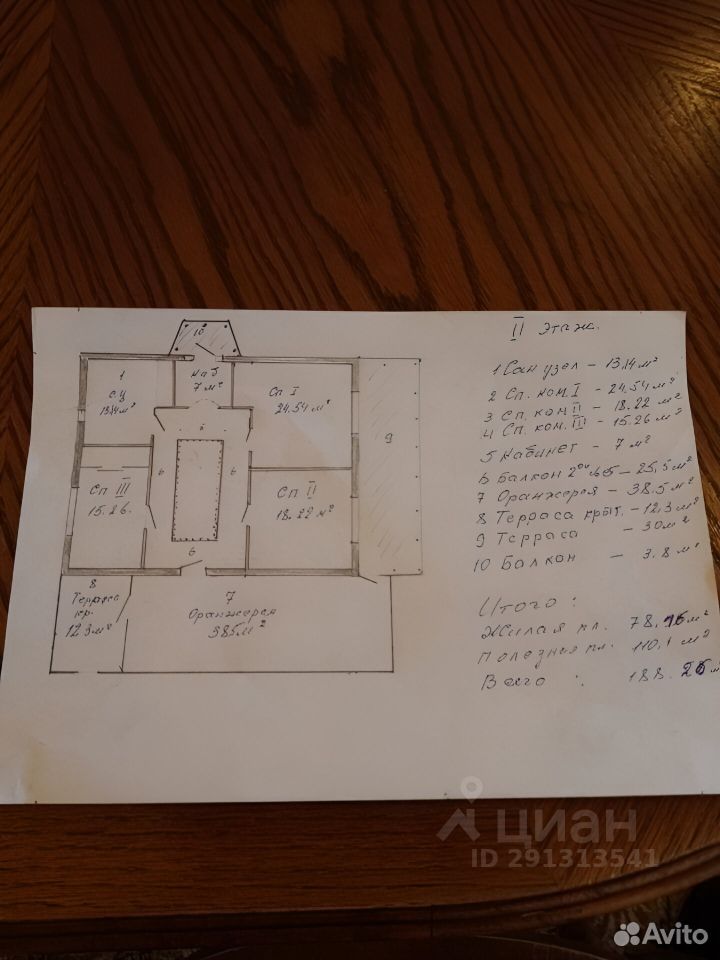 II этаж.
1 Сан узел – 13.14 м²
2 Сп. ком. I - 24.54 м²
3 Сп. ком II - 18.22 м²
4 Сп. ком. III - 15.26 м²
5 Кабинет - 7 м²
6 Балкон – 25,5 м²
7 Оранжерея – 38.5 м²
8 Терраса крыт. – 12,3 м²
9 Терраса – 30 м²
10 Балкон – 3.8 м²
Итого:
Жилая пл. 78.16 м²
Полезная пл. 110,1 м²
Всего : 188.26 м
10
1
с.у
13.14 м²
каб
7 м²
Сп I
24.54 м²
5
6
6
9
Сп III
15.26.
Сп II
18.22 м²
6
8
Терраса
кр.
12.3 м²
7
Оранжерея
385 м²
циан
ID 291313541
Avito